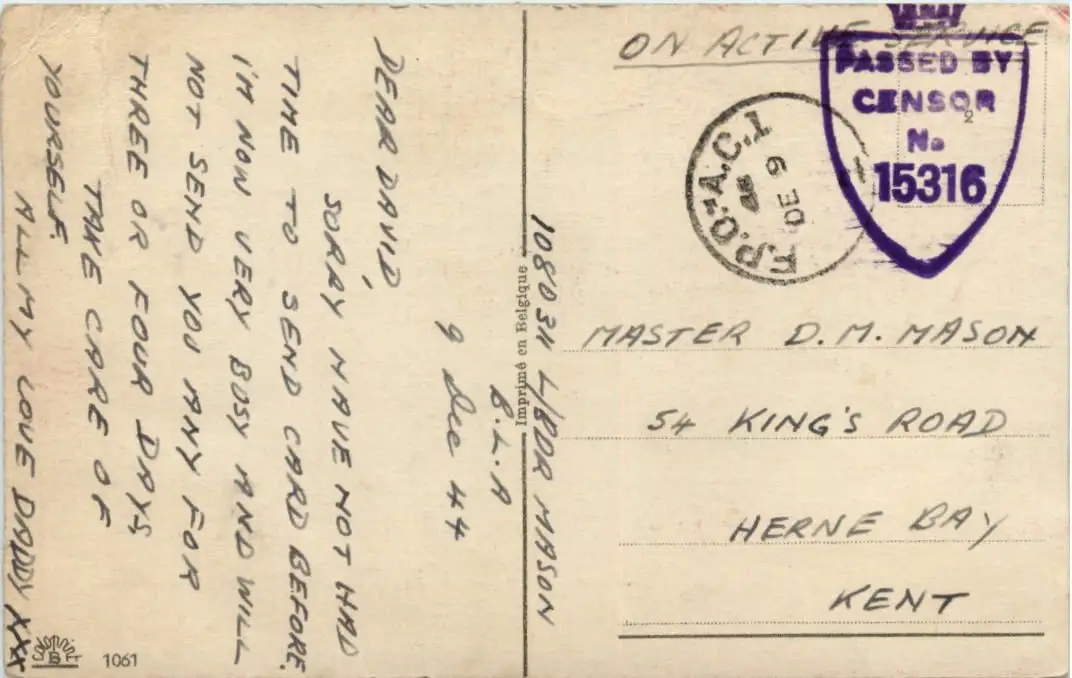 ON ACTIVE SERVICE
PASSED BY
CENSOR
No
15316
2
F.P.O.-A.C.1
9
DE
44
MASTER D. M. MASON
54 KING'S ROAD
HERNE BAY
KENT
Imprimé en Belgique
L/BDR MASON
B.L.A
9 Dec 44
DEAR DAVID,
SORRY HAVE NOT HAD
TIME TO SEND CARD BEFORE.
I'M NOW VERY BUSY AND WILL
NOT SEND YOU ANY FOR
THREE OR FOUR DAYS
TAKE CARE OF
YOURSELF.
ALL MY LOVE DADDY XXX
1061